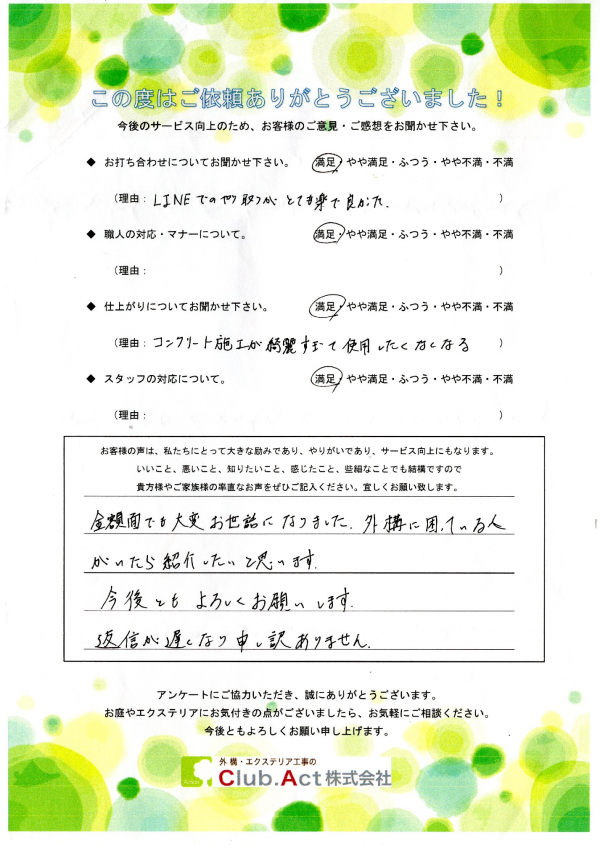 この度はご依頼ありがとうございました！
今後のサービス向上のため、お客様のご意見・ご感想をお聞かせ下さい。
◆ お打ち合わせについてお聞かせ下さい。 満足・やや満足・ふつう・やや不満・不満
（理由：LINEでのやり取りがとても楽で良かた.）
◆ 職人の対応・マナーについて。 満足・やや満足・ふつう・やや不満・不満
（理由： ）
◆ 仕上がりについてお聞かせ下さい。 満足・やや満足・ふつう・やや不満・不満
（理由：コンクリート施工が綺麗すぎて使用したくなくなる）
◆ スタッフの対応について。 満足・やや満足・ふつう・やや不満・不満
（理由： ）
お客様の声は、私たちにとって大きな励みであり、やりがいであり、サービス向上にもなります。
いいこと、悪いこと、知りたいこと、感じたこと、些細なことでも結構ですので
貴方様やご家族様の率直なお声をぜひご記入ください。宜しくお願い致します。
金額面でも大変お世話になりました. 外構に困っている人
がいたら紹介したいと思います.
今後ともよろしくお願いします.
返信が遅くなり申し訳ありません.
アンケートにご協力いただき、誠にありがとうございます。
お庭やエクステリアにお気付きの点がございましたら、お気軽にご相談ください。
今後ともよろしくお願い申し上げます。
外構・エクステリア工事の
Club.Act株式会社